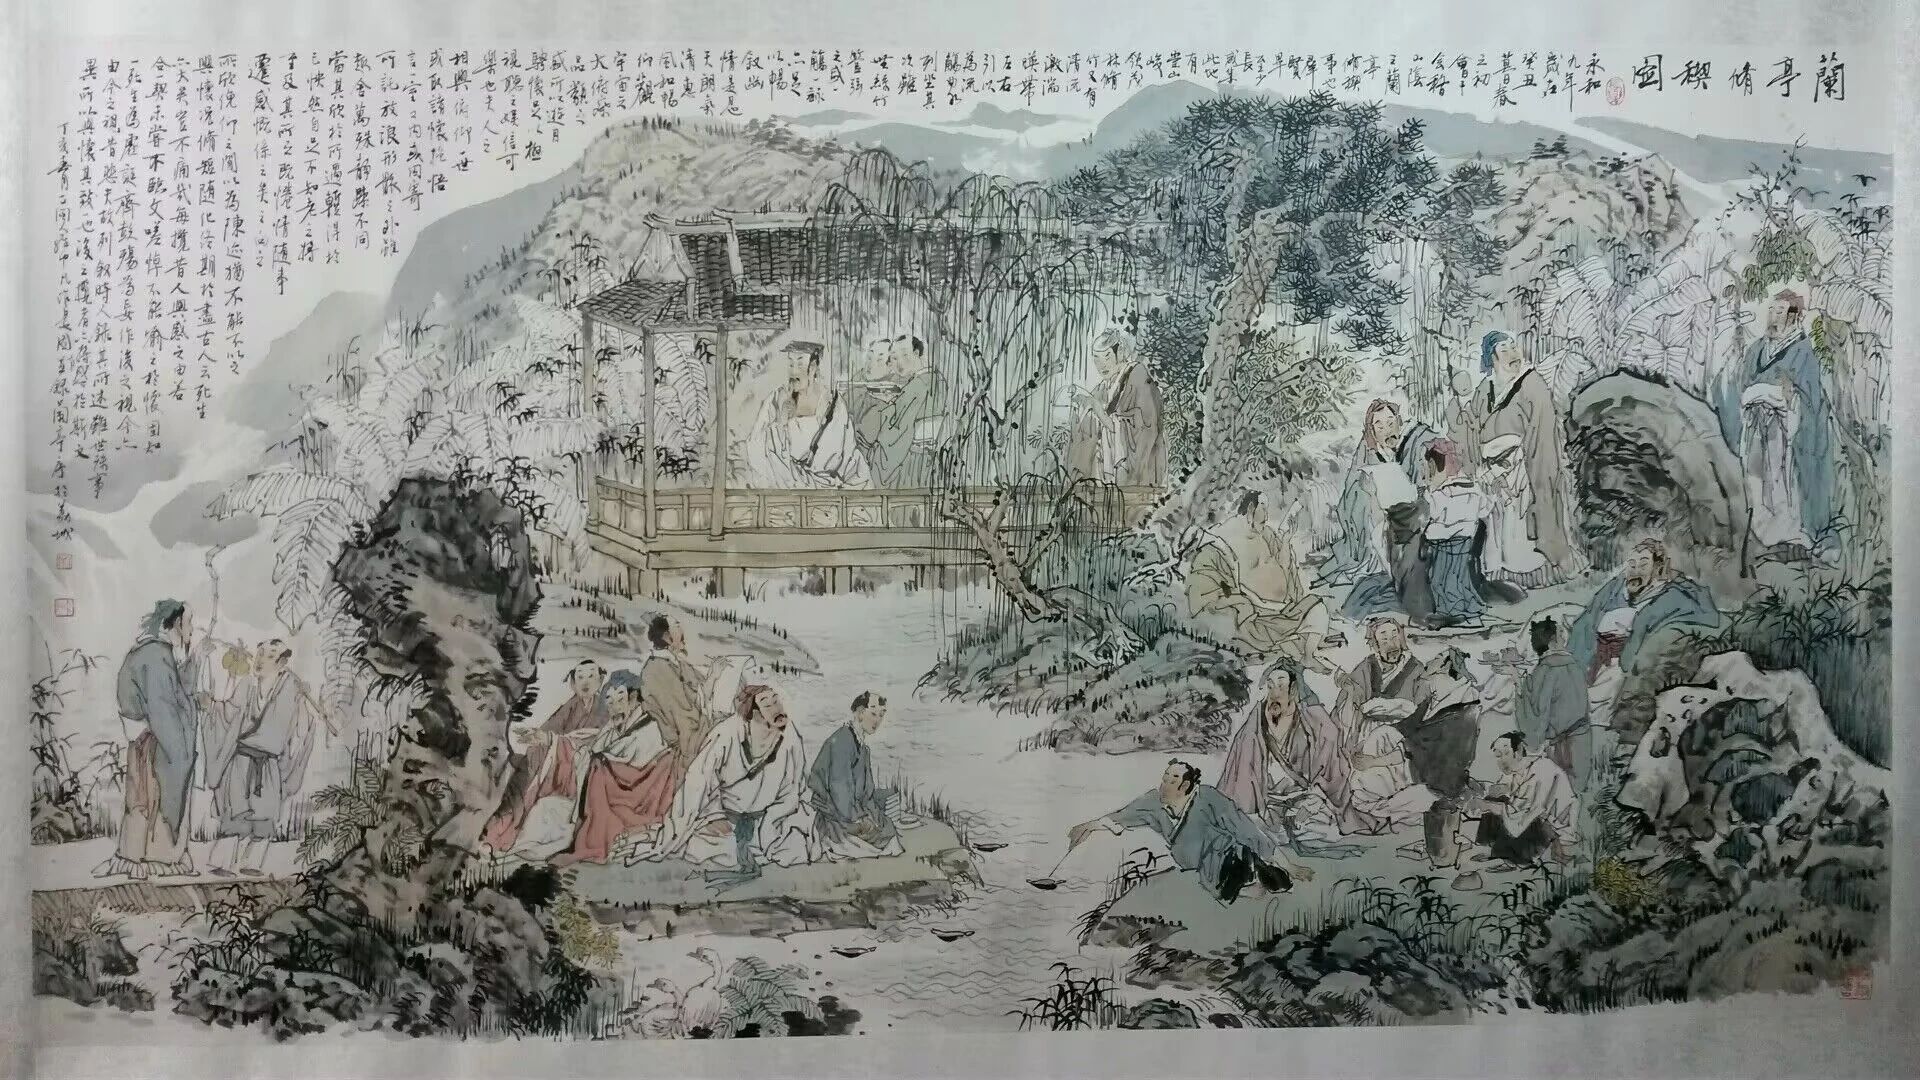 蘭亭脩禊圖
永和
九年
歲在
癸丑
暮春
之初
會于
會稽
山陰
之蘭
亭
脩禊
事也
羣賢
畢
至少
長
咸集
此地
有
崇山
峻
領茂
林脩
竹又有
清流
激湍
暎帶
左右
引以
為流
觴曲水
列坐其
次雖
無絲竹
管弦
之盛一
觴一詠
亦足
以暢
敘幽
情是日也
天朗氣
清惠
風和暢
仰觀
宇宙之
大俯察
品類之
盛所以遊目
騁懷足以極
視聽之娛信可
樂也夫人之
相與俯仰一世
或取諸懷抱悟
言一室之內或因寄
所託放浪形骸之外雖
趣舍萬殊靜躁不同
當其欣於所遇暫得於
己快然自足不知老之將
至及其所之既惓情隨事
遷感慨係之矣向之
所欣俛仰之間以為陳迹猶不能不以之
興懷況脩短隨化終期於盡古人云死生
亦大矣豈不痛哉每攬昔人興感之由若
合一契未嘗不臨文嗟悼不能喻之於懷固知
一死生為虛誕齊彭殤為妄作後之視今亦
由今之視昔悲夫故列敘時人錄其所述雖世殊事
異所以興懷其致一也後之攬者亦將有感於斯文
丁亥春月